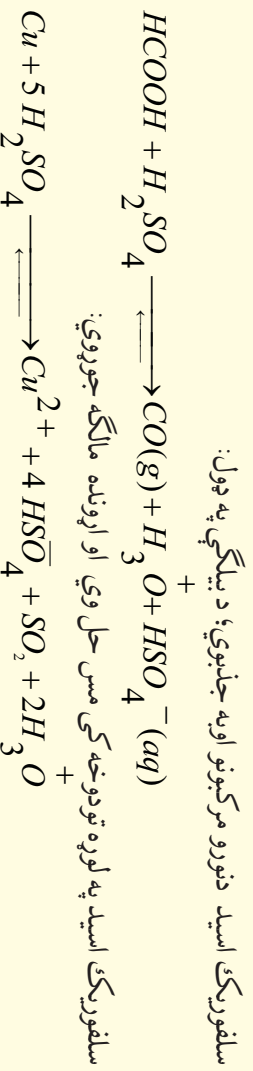 سلفوريک اسيد دنورو مرکبونو اوبه جذبوي؛ د بيلګې په ډول:
HCOOH + H₂SO₄ ⇄ CO(g) + H₃O⁺ + HSO₄⁻(aq)
سلفوريک اسيد په لوړه تودوخه کې مس حل وي او اړونده مالګه جوړوي:
Cu + 5H₂SO₄ ⇄ Cu²⁺ + 4HSO₄⁻ + SO₂ + 2H₃O⁺